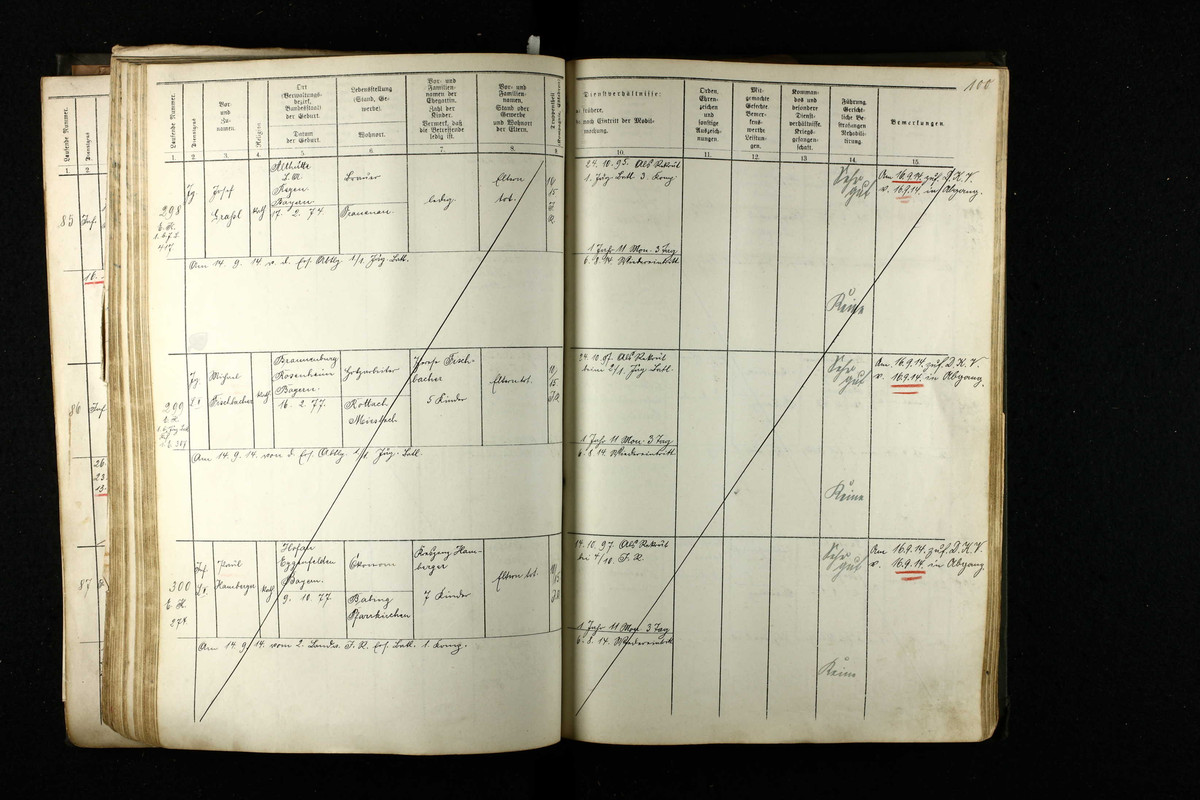 100
Laufende Nummer.
Dienstgrad
Vor-
und
Zu-
namen.
Religion
Ort
(Verwaltungs-
bezirk,
Bundesstaat)
der Geburt.
Datum
der Geburt.
Lebensstellung
(Stand, Ge-
werbe).
Wohnort.
Vor- und
Familien-
namen der
Ehegattin.
Zahl der
Kinder.
Vermerk, daß
die Betreffende
ledig ist.
Vor- und
Familien-
namen,
Stand oder
Gewerbe
und Wohnort
der Eltern.
Truppenteil
Dienstverhältnisse:
frühere,
nach Eintritt der Mobil-
machung.
Orden,
Ehren-
zeichen
und
sonstige
Auszeich-
nungen.
Mit-
gemachte
Gefechte.
Bemer-
kens-
werthe
Leistun-
gen.
Komman-
dos und
besondere
Dienst-
verhältnisse.
Kriegs-
gefangen-
schaft.
Führung.
Gericht-
liche Be-
strafungen
Rehabili-
tirung.
Bemerkungen.
1. 2. 3. 4. 5. 6. 7. 8. 9. 10. 11. 12. 13 14. 15.
298
Josef
Graßl
kath
Althütte
Regen
Bayern
17. 2. 74.
Brauer
Frauenau.
ledig.
Eltern
tot.
24. 10. 95. Als Rekrut
1. Jäg. Batl. 3. Komp.
1 Jahr 11 Mon. 3 Tag
6. 8. 14. Wiedereintritt
Sehr
gut
Keine
Am 16.9.14. zuf. D. K. V.
v. 16.9.14. in Abgang.
Am 14. 9. 14. v. d. Ers. Abtlg. 1/1. Jäg. Batl.
299
Michael
Fischbacher
kath
Brannenburg
Rosenheim
Bayern.
16. 2. 77.
Holzarbeiter
Rottach
Miesbach
Fisch-
bacher
5 Kinder
Eltern tot.
24. 10. 97. Als Rekrut
beim 2/1. Jäg. Batl.
1 Jahr 11 Mon. 3 Tag
6. 8. 14. Wiedereintritt
Sehr
gut
Keine
Am 16.9.14. zuf. D. K. V.
v. 16.9.14. in Abgang.
Am 14. 9. 14. von d. Ers. Abtlg. 1/1. Jäg. Batl.
300
Paul
Hamberger
kath
Eggenfelden
Bayern.
9. 10. 77.
Ökonom
Pfarrkirchen
Ham-
berger
7 Kinder
Eltern tot.
14. 10. 97. Als Rekrut
bei 4/10. J. R.
1 Jahr 11 Mon. 3 Tag
6. 8. 14. Wiedereintritt
Sehr
gut
Keine
Am 16.9.14. zuf. D. K. V.
v. 16.9.14. in Abgang.
Am 14. 9. 14. vom 2. Landw. J. R. Ers. Batl. 1. Komp.
85 Inf.
86 Inf.
87